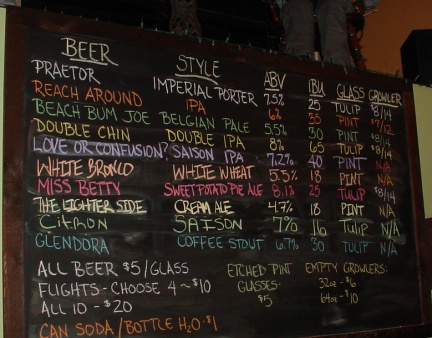 BEER STYLE ABV IBU GLASS GROWLER
PRAETOR IMPERIAL PORTER 7.5% 25 TULIP $8/14
REACH AROUND IPA 6% 35 PINT $7/12
BEACH BUM JOE BELGIAN PALE 5.5% 30 PINT $8/14
DOUBLE CHIN DOUBLE IPA 8% 65 TULIP $8/14
LOVE OR CONFUSION? SAISON IPA 7.2% 40 PINT N/A
WHITE BRONCO WHITE WHEAT 5.5% 18 PINT N/A
MISS BETTY SWEET POTATO PIE ALE 8.1% 25 TULIP $8/14
THE LIGHTER SIDE CREAM ALE 4.7% 18 PINT N/A
CITRON SAISON 7% 16 TULIP N/A
GLENDORA COFFEE STOUT 6.7% 30 TULIP N/A
ALL BEER $5/GLASS
FLIGHTS - CHOOSE 4 ~ $10
ALL 10 - $20
CAN SODA/BOTTLE H2O - $1
ETCHED PINT
GLASSES:
$5
EMPTY GROWLERS:
32oz - $6
64oz - $10